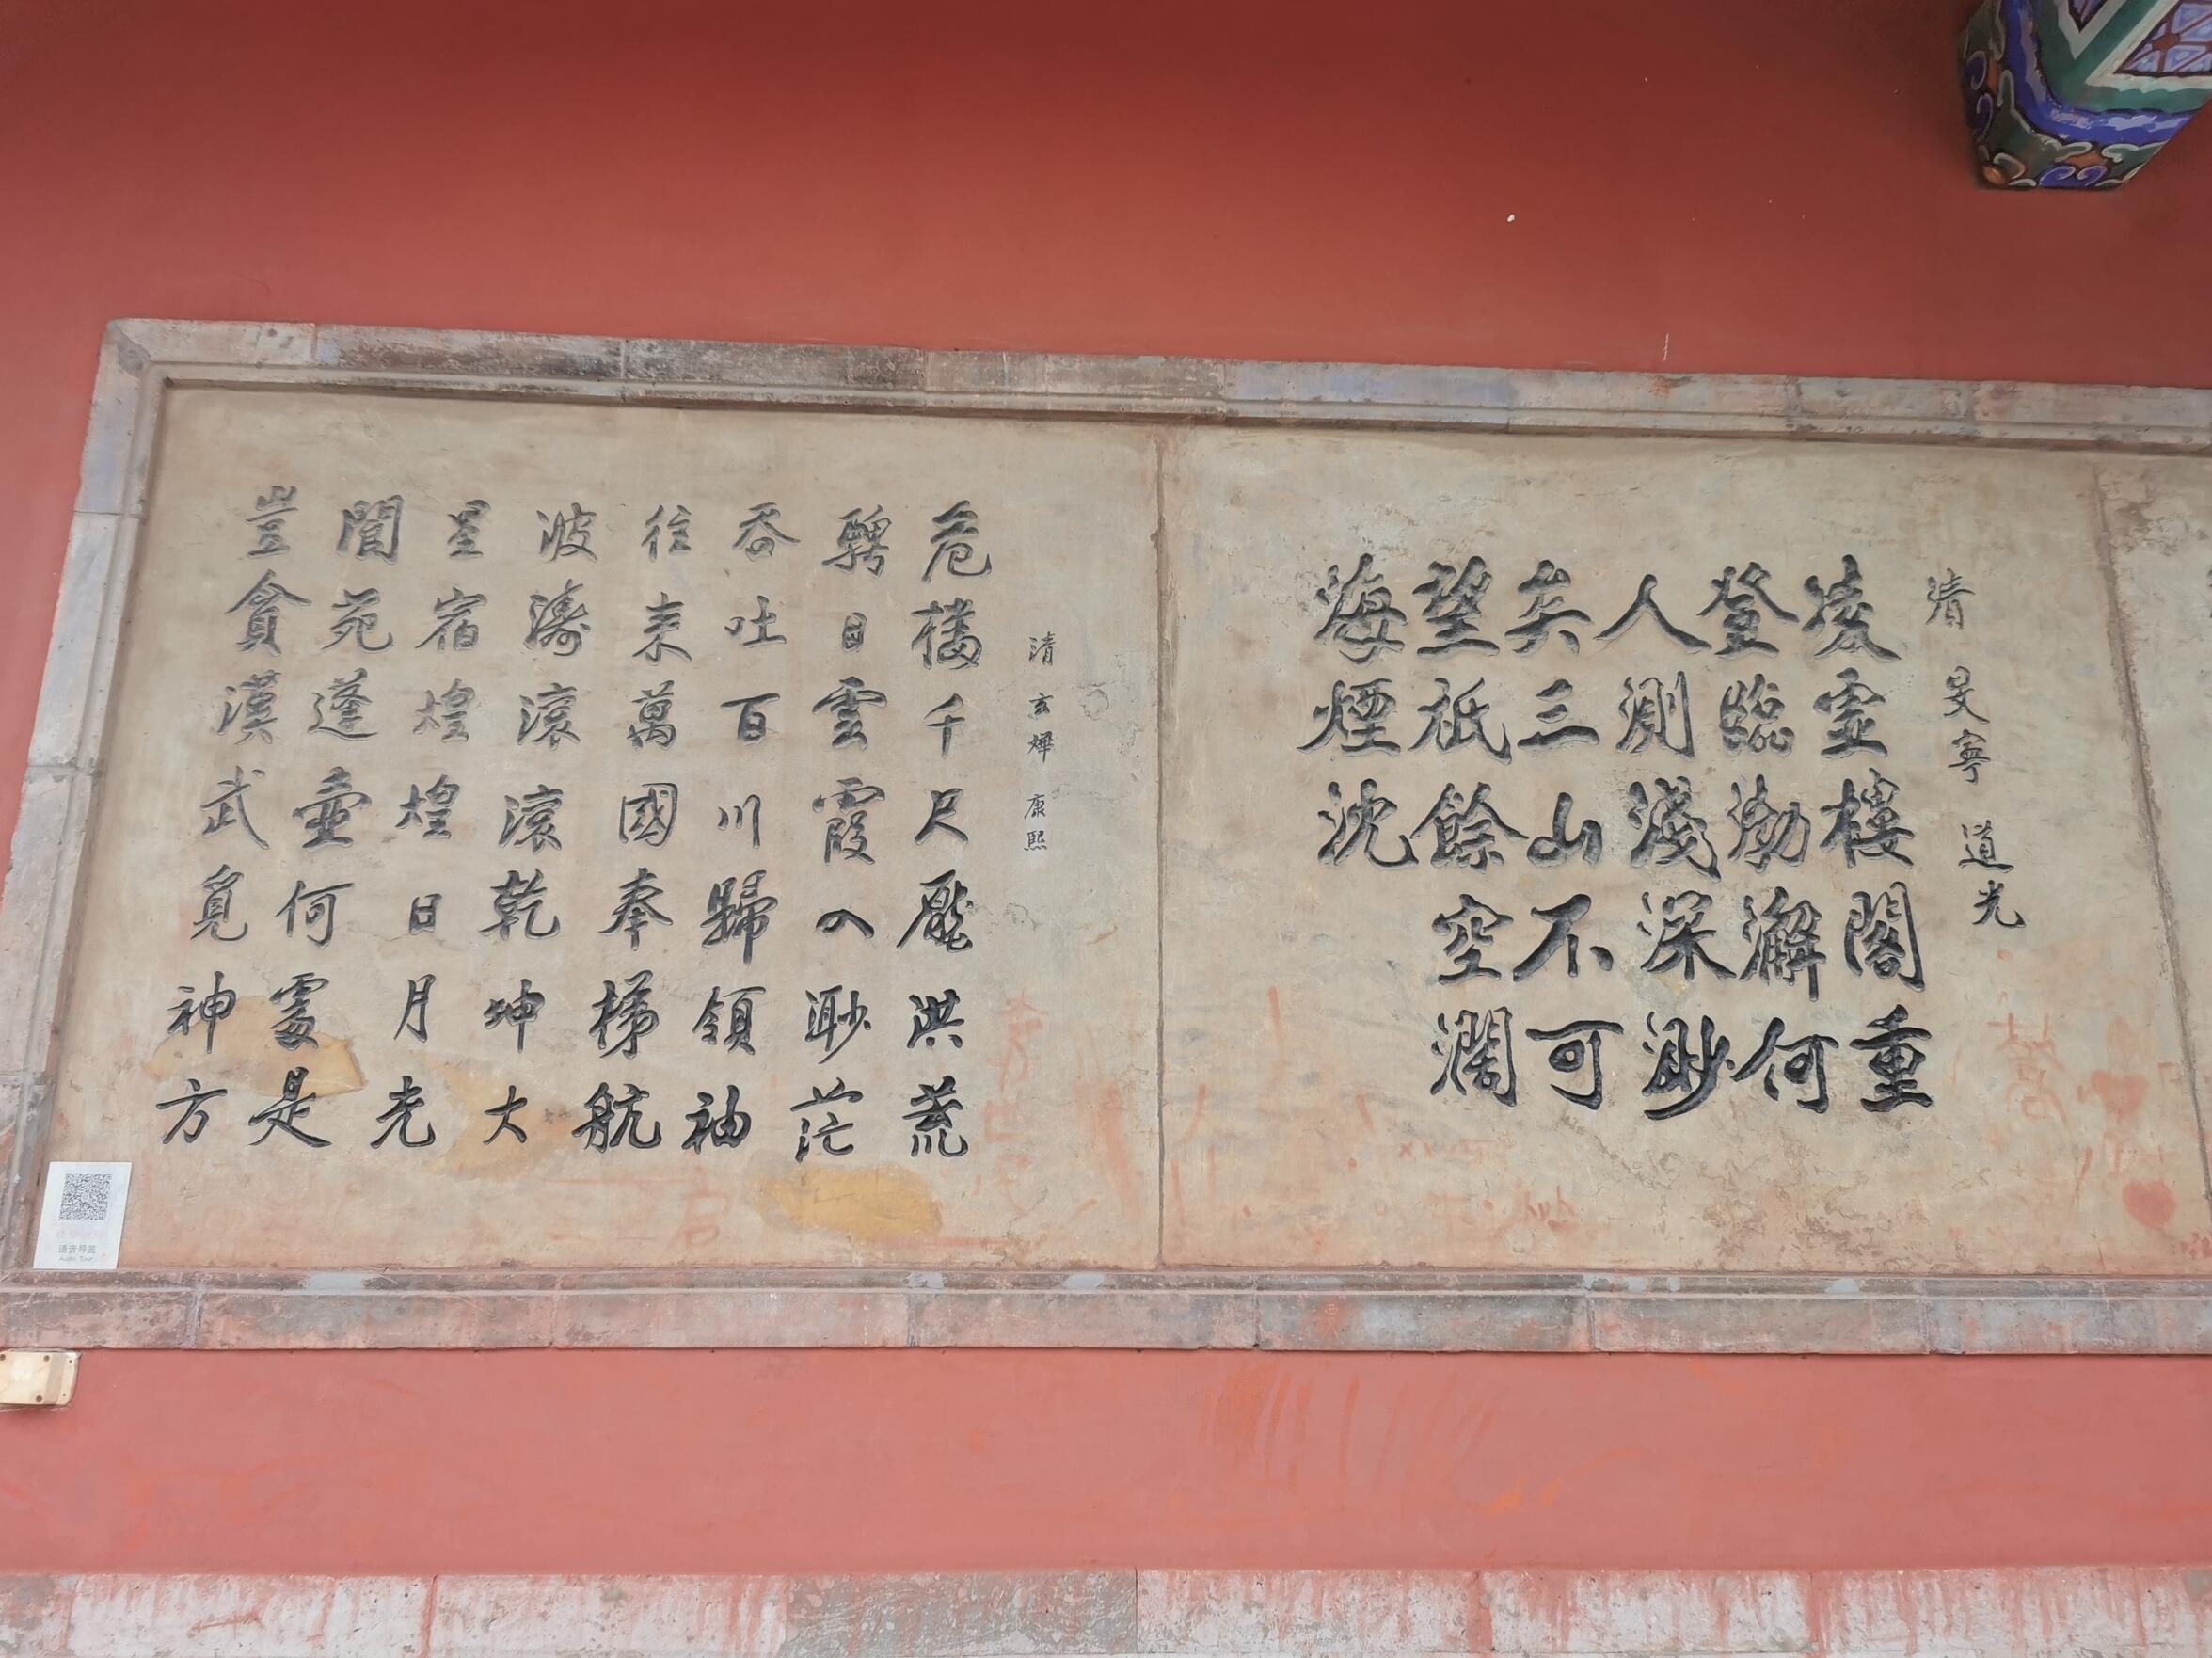 清 旻寧 道光
凌霊樓閣重
登臨渤澥何
人測淺深渺
矣三山不可
望祇餘空濶
海煙沈
清 玄燁 康熙
危樓千尺壓洪荒
騁目雲霞入渺茫
吞吐百川歸領袖
往來萬國奉梯航
波濤滾滾乾坤大
星宿煌煌日月光
閬苑蓬壺何處是
豈貪漢武覓神方
语音导览
Audio Tour